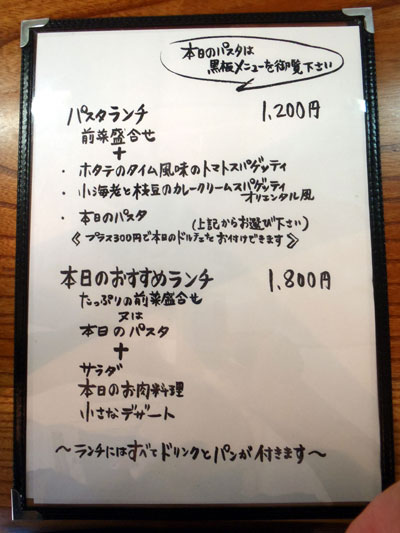 本日のパスタは
黒板メニューを御覧下さい
パスタランチ 1,200円
前菜盛合せ
+
・ ホタテのタイム風味のトマトスパゲッティ
・ 小海老と枝豆のカレークリームスパゲッティ
オリエンタル風
・ 本日のパスタ (上記からお選び下さい)
《プラス300円で本日のドルチェをお付けできます》
本日のおすすめランチ 1,800円
たっぷりの前菜盛合せ
又は
本日のパスタ
+
サラダ
本日のお肉料理
小さなデザート
〜ランチにはすべてドリンクとパンが付きます〜